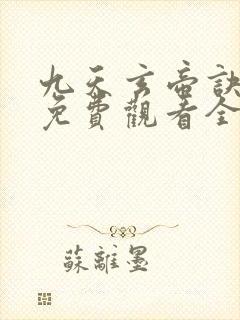 九天玄帝訣
免費觀看全
蘇離墨